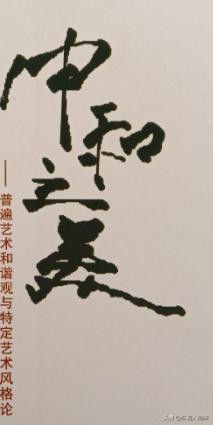 中和之美
——普遍艺术和谐观与特定艺术风格论